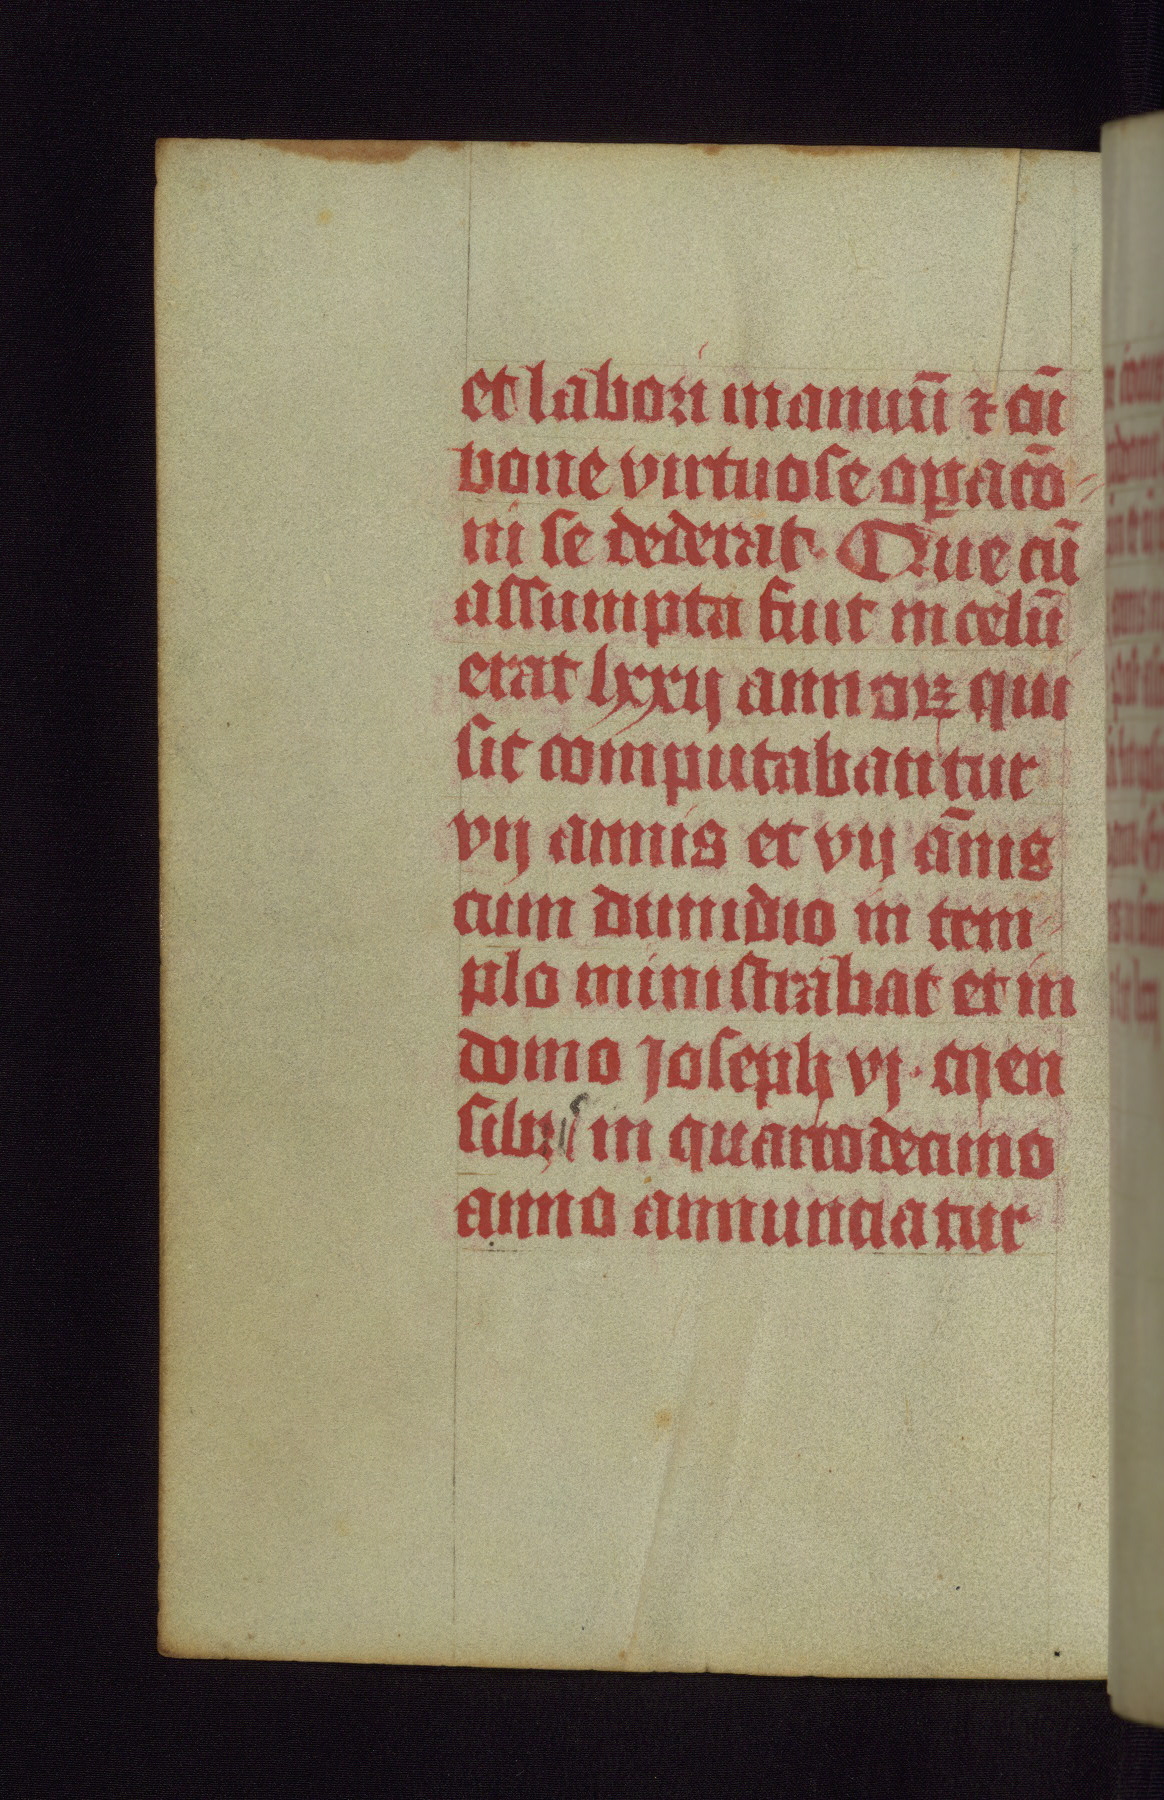 et labori manuū ⁊ cū
bone virtuose oꝑacō-
ni se dederat. Que cū
assumpta fuit in celū
erat lxxij annoꝝ qui
sic computabantur
vij annis et vij ānis
cum dimidio in tem-
plo ministrabat et in
domo Joseph vj. Men
sibus in quartodecimo
anno annunciatur